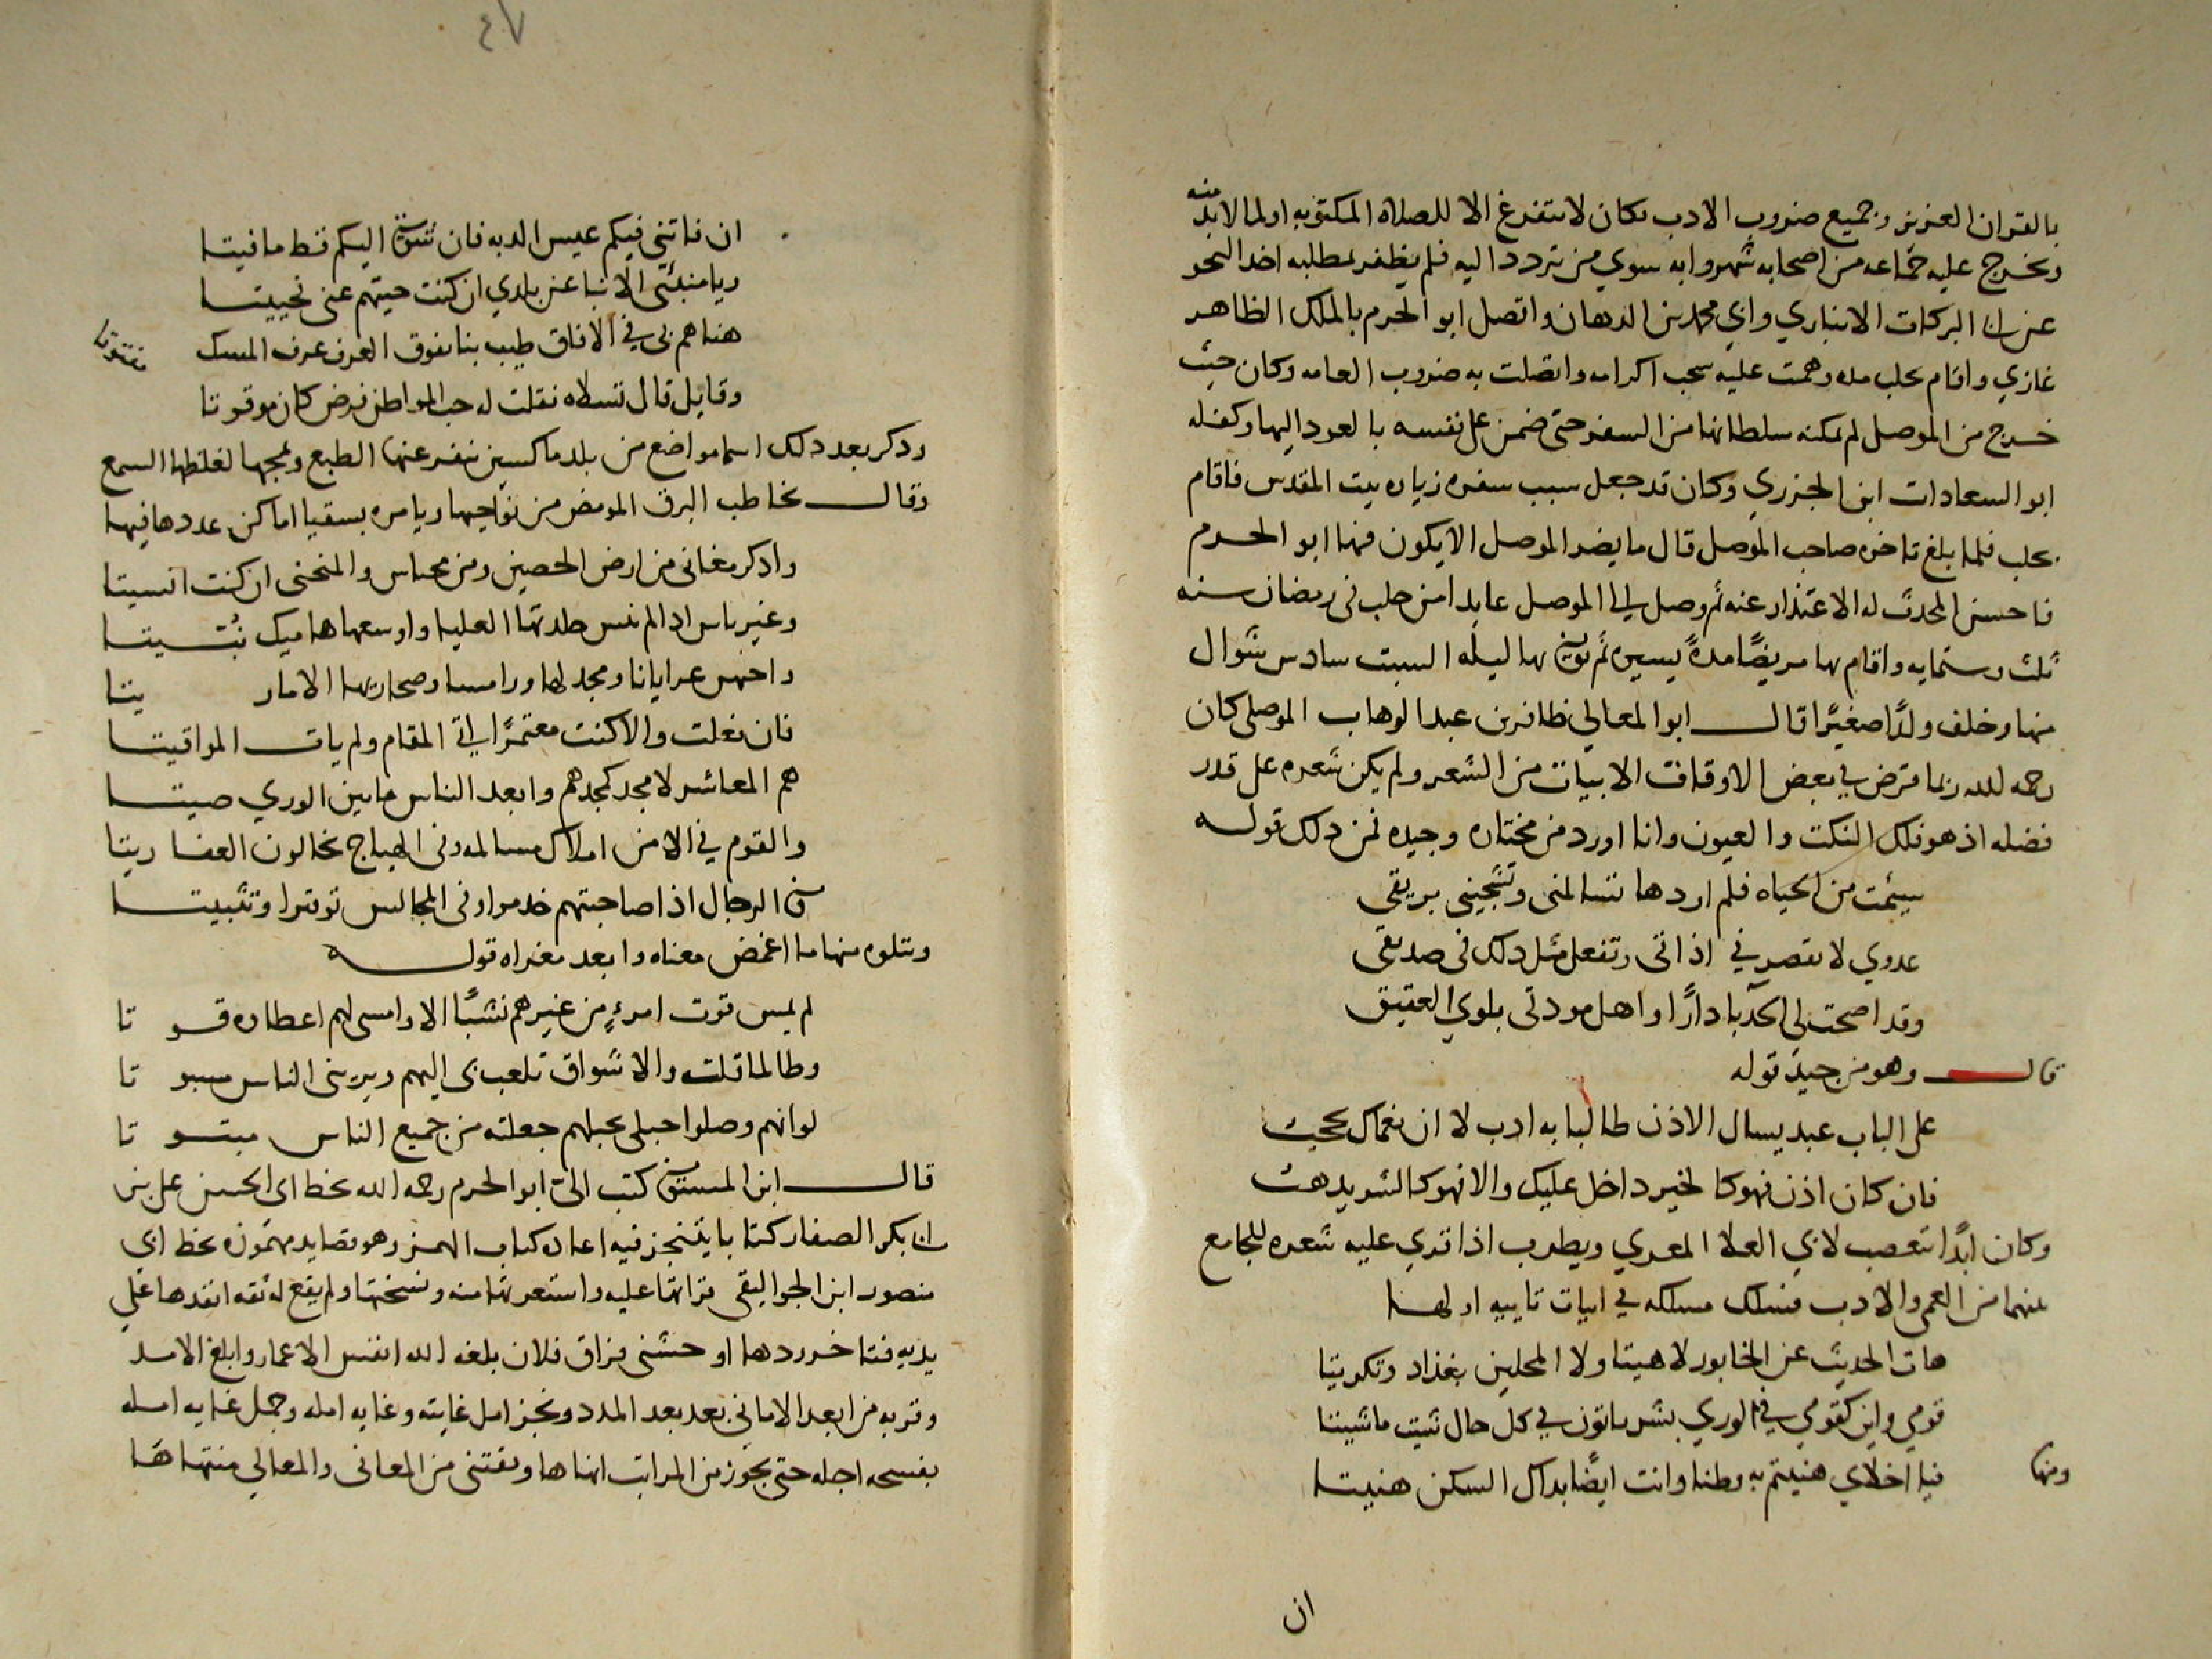 بالقران العزيز وجميع ضروب الادب وكان لا يتفرغ الا للصلاه المكتوبه او لما لابد منه
وتخرج عليه جماعه من اصحابه شهروا به سوي من تردد اليه فلم يظفر بمطلبه اخذ النحو
عن ابي البركات الانباري وابي محمد بن الدهان واتصل ابو الحرم بالملك الظاهر
غازي واقام بحلب مده وهمت عليه سحب اكرامه واتصلت به ضروب العامه وكان حيث
خرج من الموصل لم يمكنه سلطانها من السفر حتى ضمن على نفسه بالعود اليها وكفله
ابو السعادات ابن الجزري وكان قد جعل سبب سفره زياره بيت المقدس فاقام
بحلب فلما بلغ تاخره صاحب الموصل قال ما يضر الموصل الا يكون فيها ابو الحرم
فاحسن المحدث له الاعتذار عنه ثم وصل الى الموصل عايدا من حلب في رمضان سنه
ثلث وستمايه واقام بها مريضًا مدةً يسيره ثم توفي بها ليله السبت سادس شوال
منها وخلف ولدًا صغيرًا قال ابو المعالي ظافر بن عبد الوهاب الموصلي كان
رحمه الله ربما قرض في بعض الاوقات الابيات من الشعر ولم يكن شعره على قدر
فضله اذ هو فلك النكت والعيون وانا اورد من مختاره وجيده فمن ذلك قوله
سيئمت من الحياه فلم اردها تسالمني وتشجيني بريقي
عدوي لا يقصر في اذاتي وتفعل مثل ذلك في صديقي
وقد اضحت لي الحدبا دارًا واهل مودتي بلوي العقيق
قال وهو من جيد قوله
على الباب عبد يسال الاذن طالبا به ادب لا ان نعماك تحجب
فان كان اذن فهو كالخير داخل عليك والا فهو كالشر يذهب
وكان ابدًا يتعصب لابي العلا المعري ويطرب اذا قري عليه شعره للجامع
بينهما من العمي والادب فسلك مسلكه في ابيات تاييه اولها
هات الحديث عن الخابور لا هيتا ولا المحلين بغداد وتكريتا
قومي واين كقومي في الوري بشر باتون في كل حال شيت ما شيتا
ومنها
فيا اخلاي هنيتم به وطنا وانت ايضًا بذاك السكن هنيتا
ان
٤٧
ان فاتني فيكم عيس الديه فان شوقي اليكم قط ما فيتا
ويا منبئي الانبا عن بلدي ان كنت حييتهم عني فحييتا
هناهم بي في الافاق طيب بنا يفوق العرف عرف المسك مفتوتا
وقايل قال تسلاه فقلت له حب المواطن فرض كان موقوتا
وذكر بعد ذلك اسما مواضع من بلد ماكسين ينفر عنها الطبع ويمجها لغلظها السمع
وقال يخاطب البرق المومض من نواحيها ويامره بسقيا اماكن عددها فيها
واذكر مغاني من ارض الحصين ومن محباس والمنحني ان كنت انسيتا
هم المعاشر لا مجد كمجدهم وابعد الناس ما بين الوري صيتا
فان فعلت والا كنت معتمرًا الى المقام ولم يات المواقيتا
والقوم في الامن املاك مسالمه وفي الهياج تخالون العفاريتا
في الرجال اذا صاحبتهم خدموا وفي المجالس توقيرا وتثبيتا
ويتلوه منها ما اغمض معناه وابعد مغزاه قوله
لم يمس قوت امرءٍ من غيرهم نشبًا الا وامسى لهم اعطاه قوتا
وطالما قلت والاشواق تلعب بي اليهم ويريني الناس سبوتا
لو انهم وصلوا حبلي بحبلهم جعلته من جميع الناس مبتوتا
قال ابن المستوفي كتب الى ابو الحرم رحمه الله بخط ابي الحسن علي بن
ابي بكر الصفار كتابا يتنجز فيه اعاده كتاب الهمز وهو قصايد مهموزه بخط ابي
منصور ابن الجواليقي قراتها عليه واستعرتها منه ونسختها ولم يقع له ثقه انفدها على
يديه فتاخر ردها اوحشني فراق فلان بلغه الله انفس الاعمار وابلغ الامد
وقربه من ابعد الاماني بعد بعد المدد ونجز امل غايته وغايه امله وجمل عنايه امله
بفسحه اجله حتى يحوز من المراتب اسناها ويقتني من المعاني والمعالي منتهاها